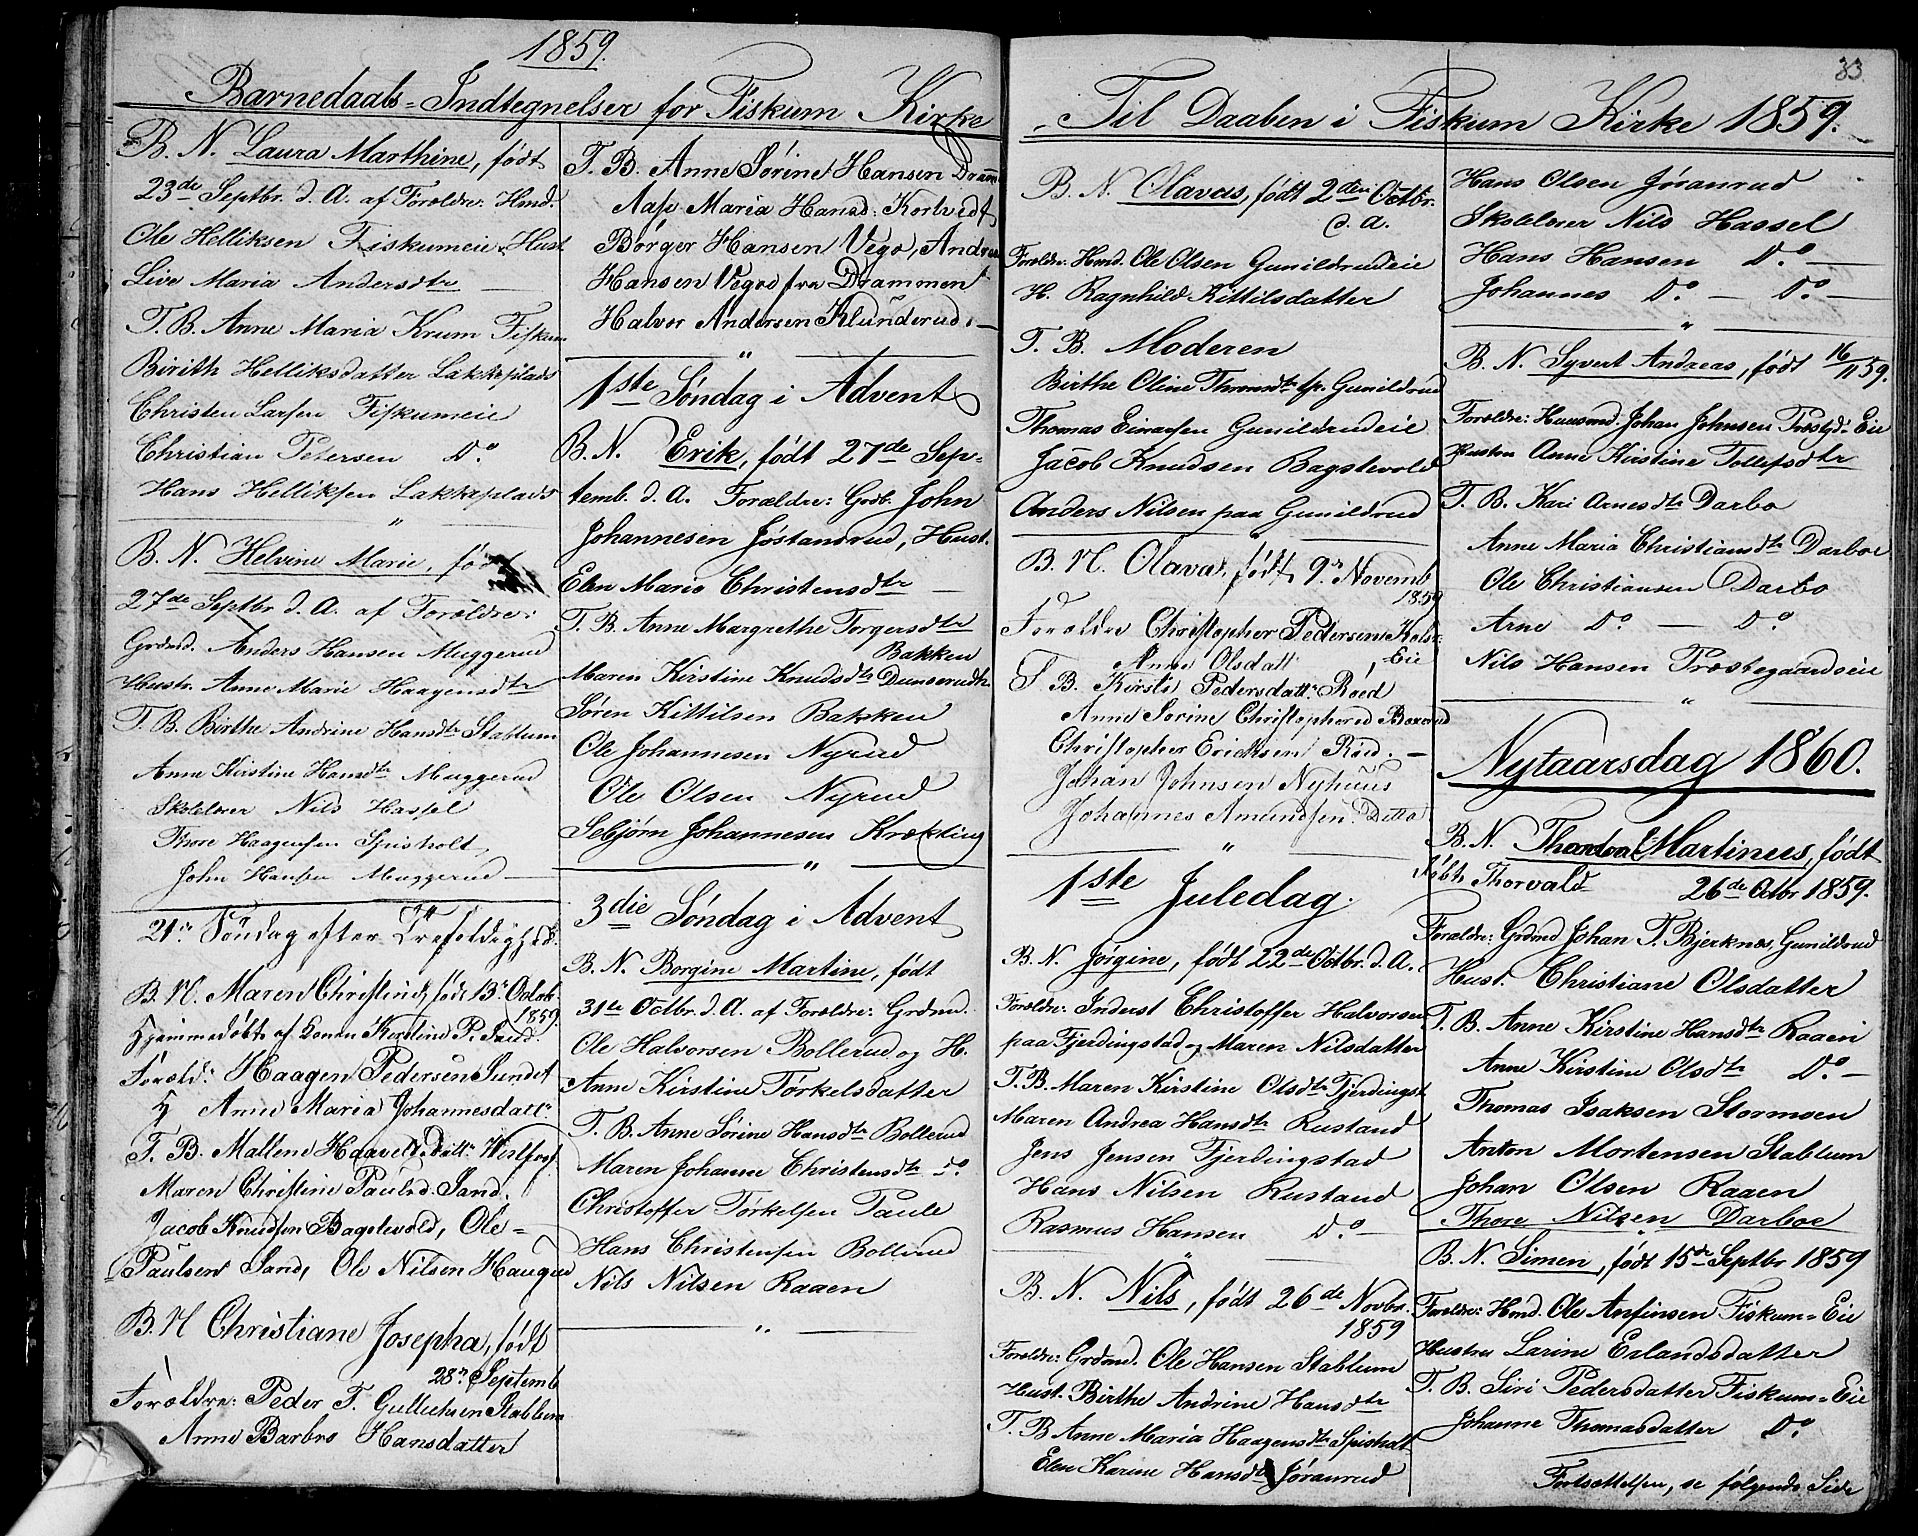 1859.
Barnedaabs=Indtegnelser for Fiskum Kirke
B. N. Laura Marthine, født
23de Septbr. d. A. af Forældre: Hmd.
Ole Helliksen Fiskumeie, Hust
Live Maria Andersdtr
T. B. Anne Maria Krum Fiskum
Birith Helliksdatter Lakkeplads
Christen Larsen Fiskumeie
Christian Petersen Do.
Hans Helliksen Lakkeplads
B. N. Helvine Marie, født
27de Septbr. d. A. af Forældre:
Grdmd. Anders Hansen Muggerud
Hustr. Anne Marie Haagensdtr
T. B. Birthe Andrine Hansdtr Stablum
Anne Kirstine Hansdtr Muggerud
Skolelærer Nils Hassel
Thore Haagensen Spisholt,
John Hansen Muggerud
21n Søndag efter Trefoldighed.
B. N. Maren Christine, født 13n Octob.
1859.
Hjemmedøbt af Konen Kirstine P. Sand.
Foræld: Haagen Pedersen Sundet
H Anne Maria Johannesdatt:
T. B. Mallene Haavelsdatt: Wislfos
Maren Christine Paulsd. Sand.
Jacob Knudsen Bagstevold, Ole
Paulsen Sand, Ole Nilsen Haugerud
B. N Christiane Josepha, født
28n Septemb
Forældre: Peder T. Gulliksen Stablum
Anne Barbro Hansdatter
T. B. Anne Sørine Hansen Dramm
Aase Maria Hansd: Kortvedt
Børger Hansen Vego, Andreas
Hansen Vegoe fra Drammen
Halvor Andersen Klunderud.
1ste Søndag i Advent
B. N. Erik, født 27de Sep-
temb. d. A. Forældre: Grdb. John
Johannesen Jøstandrud, Hust.
Elen Maria Christensdtr
T. B. Anne Margrethe Torgersdtr
Bakken
Maren Kirstine Knudsdtr Dunserudh.
Søren Kittilsen Bakken
Ole Johannesen Nyrud
Ole Olsen Nyrud
Sebjørn Johannesen Krækling
3die Søndag i Advent
B. N. Borgine Martine, født
31te Octbr. d. A. af Forældre: Grdmd.
Ole Halvorsen Bollerud og H.
Anne Kirstine Torkelsdatter
T. B. Anne Sørine Hansdtr Bollerud
Maren Johanne Christensdtr Do
Christoffer Torkelsen Paule
Hans Christensen Bollerud
Nils Nilsen Raaen
33.
Til Daaben i Fiskum Kirke 1859.
B. N. Olaves, født 2den Octbr.
d. A.
Forældre: Hmd. Ole Olsen Gunildrudeie
H. Ragnhild Kittilsdatter
T. B. Moderen
Birthe Oline Thomsdtr Gunildrud
Thomas Einarsen Gunildrudeie
Jacob Knudsen Bagstevold
Anders Nilsen paa Gunildrud
B. N. Olava, født 9n Novemb
1859
Forældre Christopher Pedersen Kolsr:
Anne Olsdatt: , Eie
T. B. Kirsti Pedersdatt: Røed
Anne Sorine Christophersd Boxerud
Christopher Ericksen Røed.
Johan Johnsen Nyhuus
Johannes Amundsen Ditto
1ste Juledag.
B. N. Jørgine, født 22de Octbr. d. A.
Forældre: Inderst Christoffer Halvorsen
paa Fjerdingstad og Maren Nilsdatter
T. B. Maren Kirstine Olsdtr Fjerdingst
Maren Andrea Hansdtr Rustand
Jens Jensen Fjerdingstad
Hans Nilsen Rustand
Rasmus Hansen Do
B. N. Nils, født 26de Novbr.
1859
Forældre: Grdmd. Ole Hansen Stablum
Hust. Birthe Andrine Hansdtr
T. B. Anne Maria Haagensdtr Spisholt
Elen Karine Hansdtr Jøranrud
Hans Olsen Jøranrud
Skolelærer Nils Hassel
Hans Hansen Do.
Johannes Do. Do.
B. N. Syvert Andreas, født 16/11 59.
Forældre: Huusmd. Johan Johnsen Præstgd. Eie
Hustru Anne Kirstine Tollefsdtr
T. B. Kari Arnesdtr Darbo
Anne Maria Christiansdtr Darboe
Ole Christiansen Darbo
Arne Do. Do.
Nils Hansen Præstegaardseie
Nytaarsdag 1860.
B. N. Thorvald Martinus, født
døbt Thorvald 26de Octbr 1859.
Forældre: Grdmd Johan T. Bjerknes, Gunildrud
Hust. Christiane Olsdatter
T. B. Anne Kirstine Hansdtr Raaen
Anne Kirstine Olsdtr Do.
Thomas Isaksen Stormoen
Anton Mortensen Stablum
Johan Olsen Raaen
Thore Nilsen Darboe
B. N. Simen, født 15de Septbr 1859
Forældre: Hmd. Ole Anfinsen Fiskum=Eie
Hustru Larine Erlandsdatter
T. B. Siri Pedersdatter Fiskum=Eie
Johanne Thomasdatter Do.
Fortsættelsen, se følgende Side